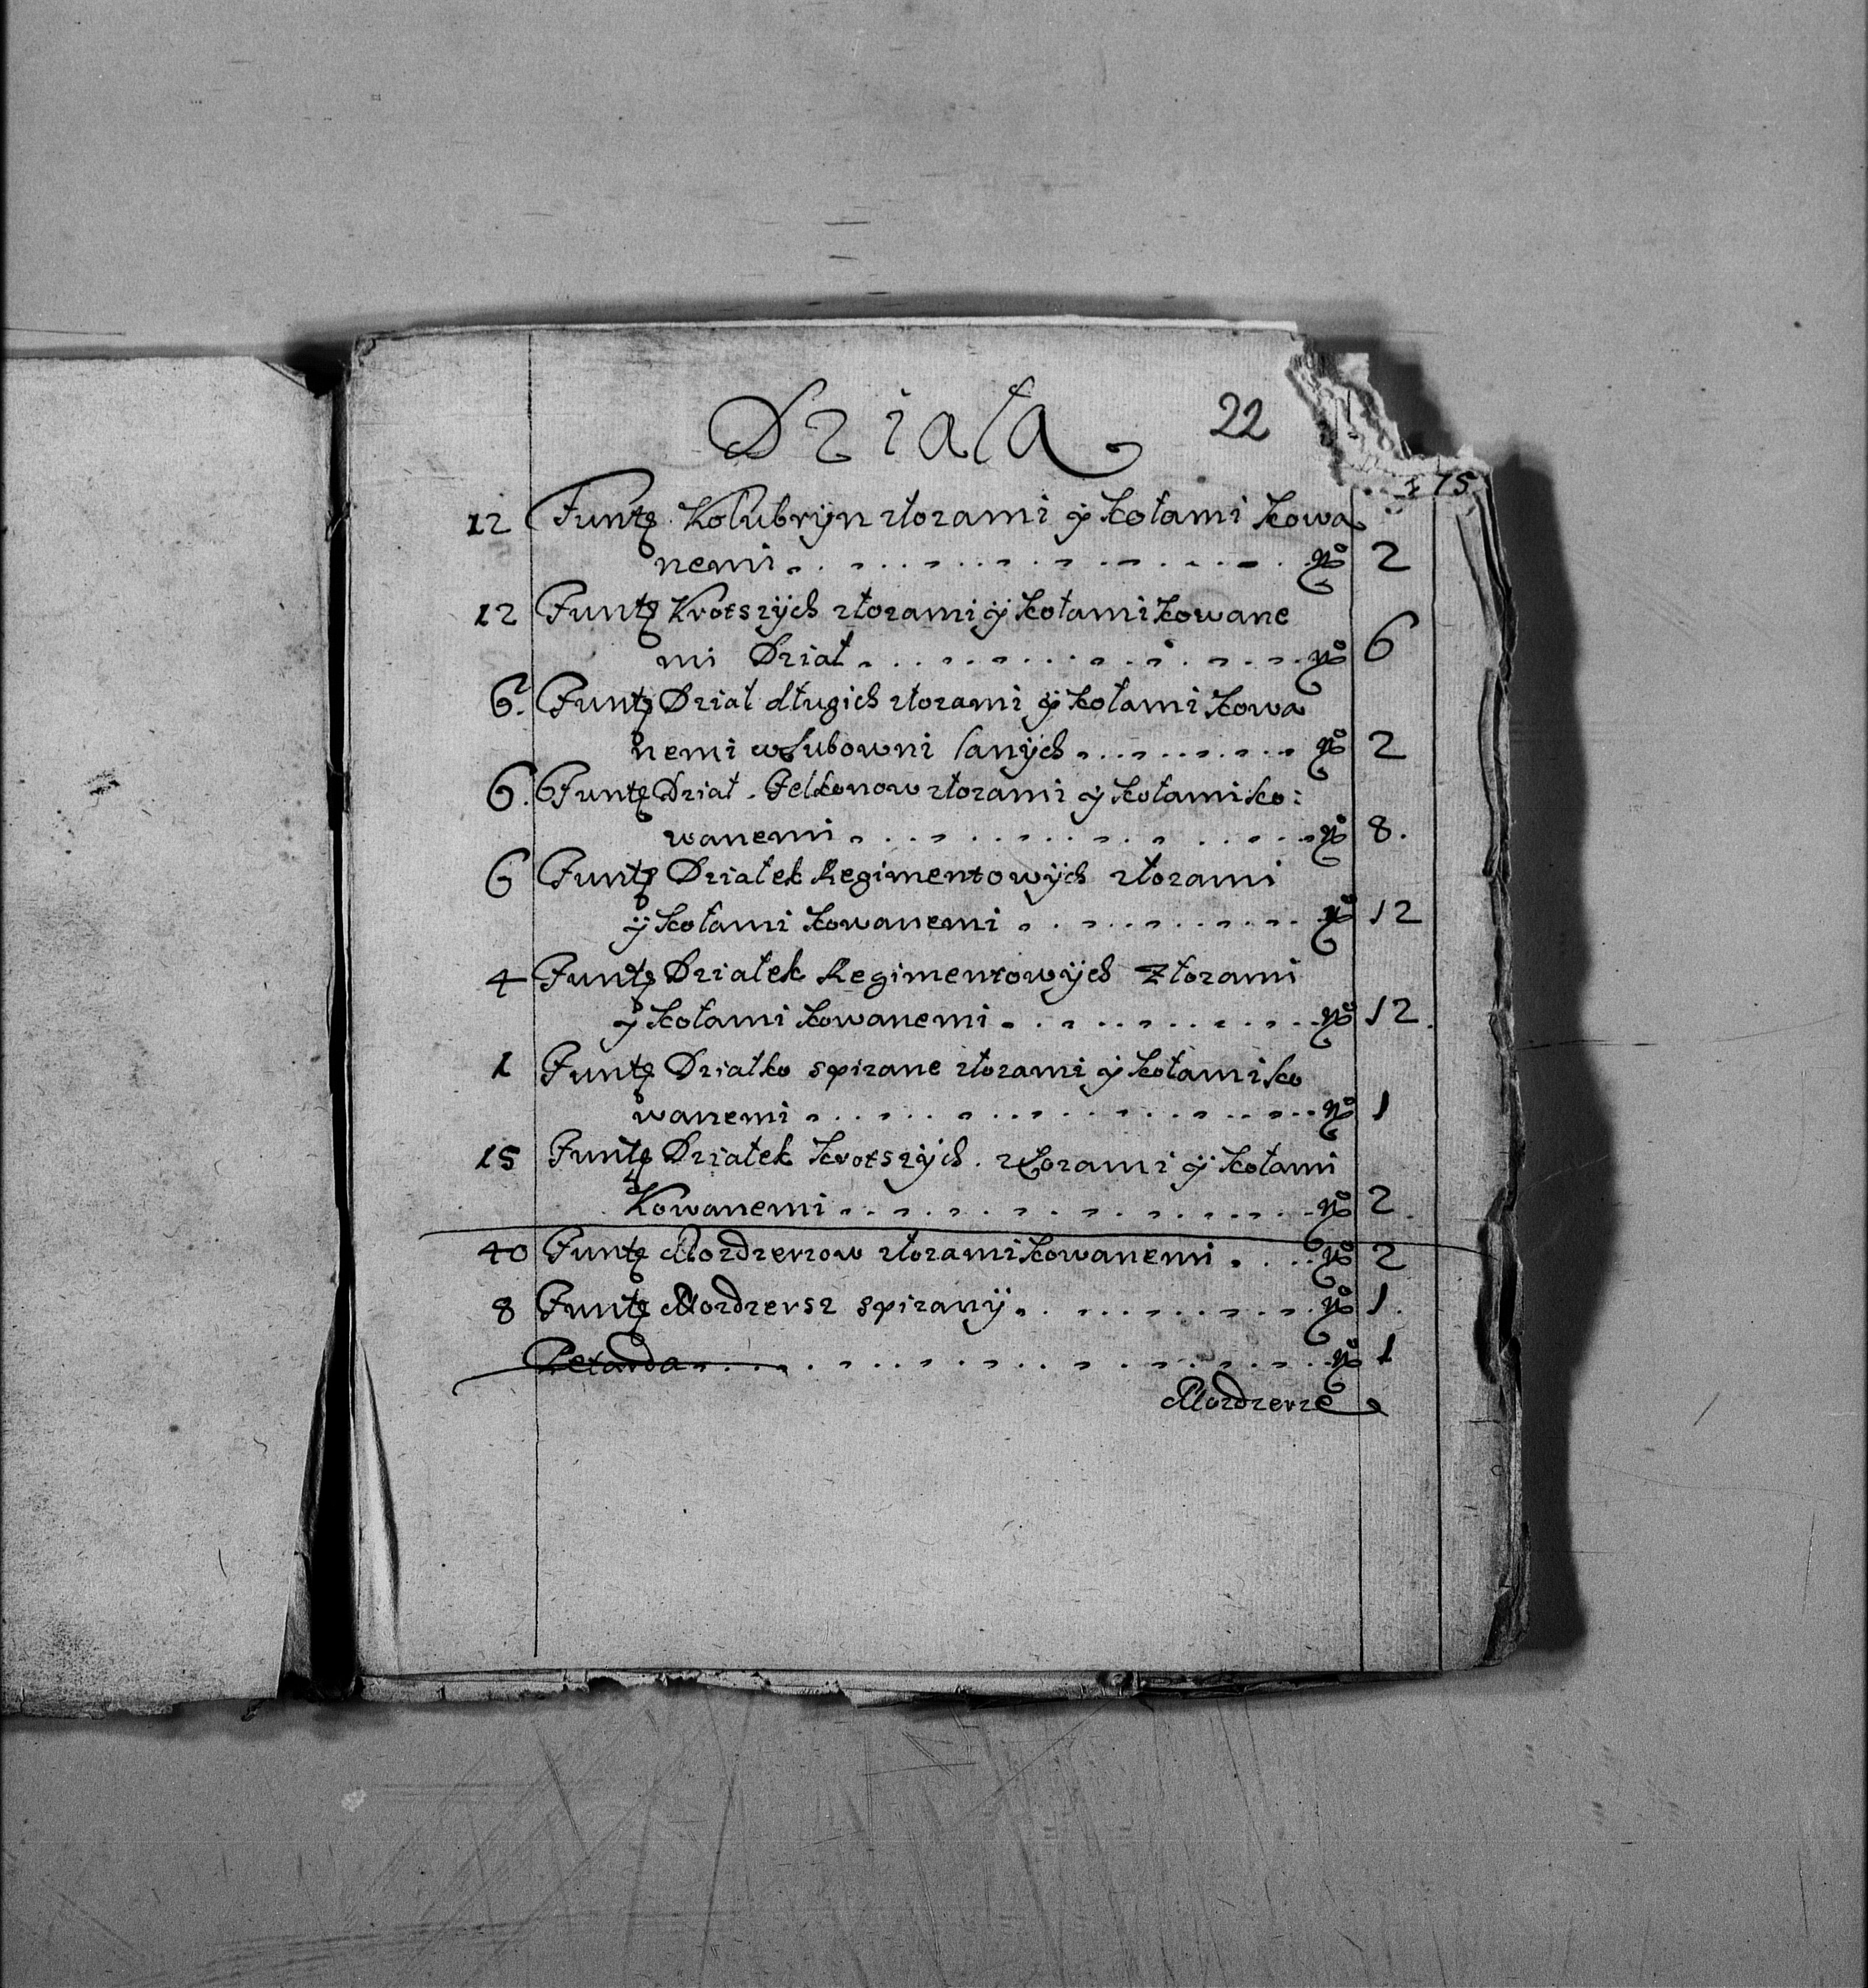 Działa 22
175
12 Funtę Kolubryn złozami ÿ kołami kowa
nemi . . . . . . . . . . . . No 2
12 Funtę krotszÿch złozami ÿ kołami kowane
mi Dział . . . . . . . . . . . . No 6
6. Funtę Dział długich złozami ÿ kołami kowa
nemi w Lubowni lanÿch . . . . . . . . No 2
6. Funtę Dział . Felkonow złozami ÿ kołami ko:
wanemi . . . . . . . . . . . . No 8.
6 Funtę Działek Regimentowÿch złozami
ÿ kołami kowanemi . . . . . . . . . . No 12
4 Funtę Działek Regimentowÿch złozami
ÿ kołami kowanemi . . . . . . . . . . No 12.
1 Funtę Działko spizane złozami ÿ kołami ko
wanemi . . . . . . . . . . . . No 1
15 Funtę Działek krotszÿch . złozami ÿ kołami
Kowanemi . . . . . . . . . . . . No 2.
40 Funtę Mozdzerzow złozami kowanemi . . . No 2
8 Funtę Mozdzersz spizanÿ . . . . . . . . No 1.
Petarda . . . . . . . . . . . . No 1
Mozdzerze